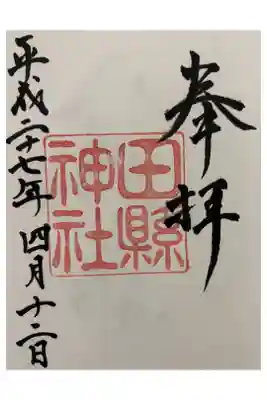 奉拝
田縣
神社
平成二十七年四月十二日